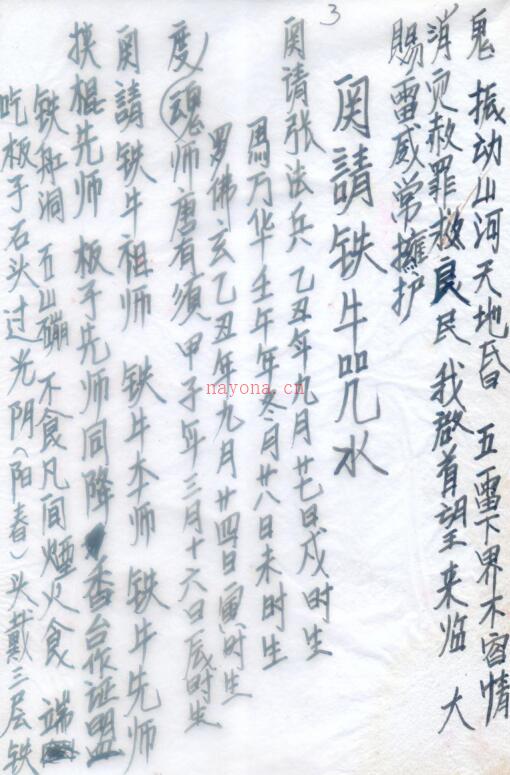 3
鬼 振动山河天地昏 五雷下界不容情
消灾赦罪救良民 我啟首望来临 大
賜雷威常擁护
闵請铁牛咒水
闵请张法兵 乙丑年九月廿七日戍时生
馬万华壬午年冬月廿八日未时生
罗佛玄乙丑年九月廿四日寅时生
度魂师唐有须甲子年三月十六日辰时生
闵請铁牛祖师 铁牛本师 铁牛先师
摸棍先师 板子先师同降 香台作证盟
铁船洞 五山硼 不食凡间煙火食 端
吃板子石头过光阴(阳春)头戴三层铁
nayona.cn